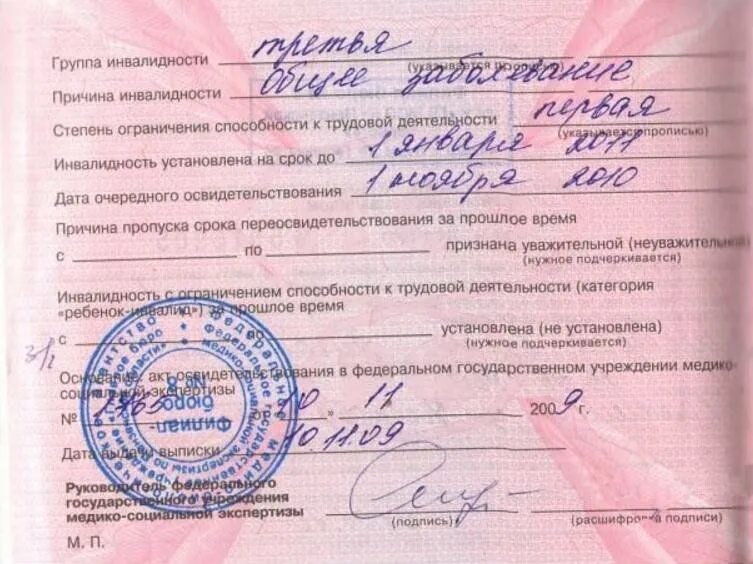 Группа инвалидности третья
(указывается прописью)
Причина инвалидности общее заболевание
Степень ограничения способности к трудовой деятельности первая
(указывается прописью)
Инвалидность установлена на срок до 1 января 2011
Дата очередного освидетельствования 1 ноября 2010
Причина пропуска срока переосвидетельствования за прошлое время
с по признана уважительной (неуважительной)
(нужное подчеркивается)
Инвалидность с ограничением способности к трудовой деятельности (категория
«ребенок-инвалид») за прошлое время
с по установлена (не установлена)
(нужное подчеркивается)
Основание: акт освидетельствования в федеральном государственном учреждении медико-
социальной экспертизы
№ от « 10 » 11 2009 г.
Дата выдачи выписки 10.11.09
Руководитель федерального
государственного учреждения
медико-социальной экспертизы
(подпись) (расшифровка подписи)
М. П.
филиал
бюро
№ 8